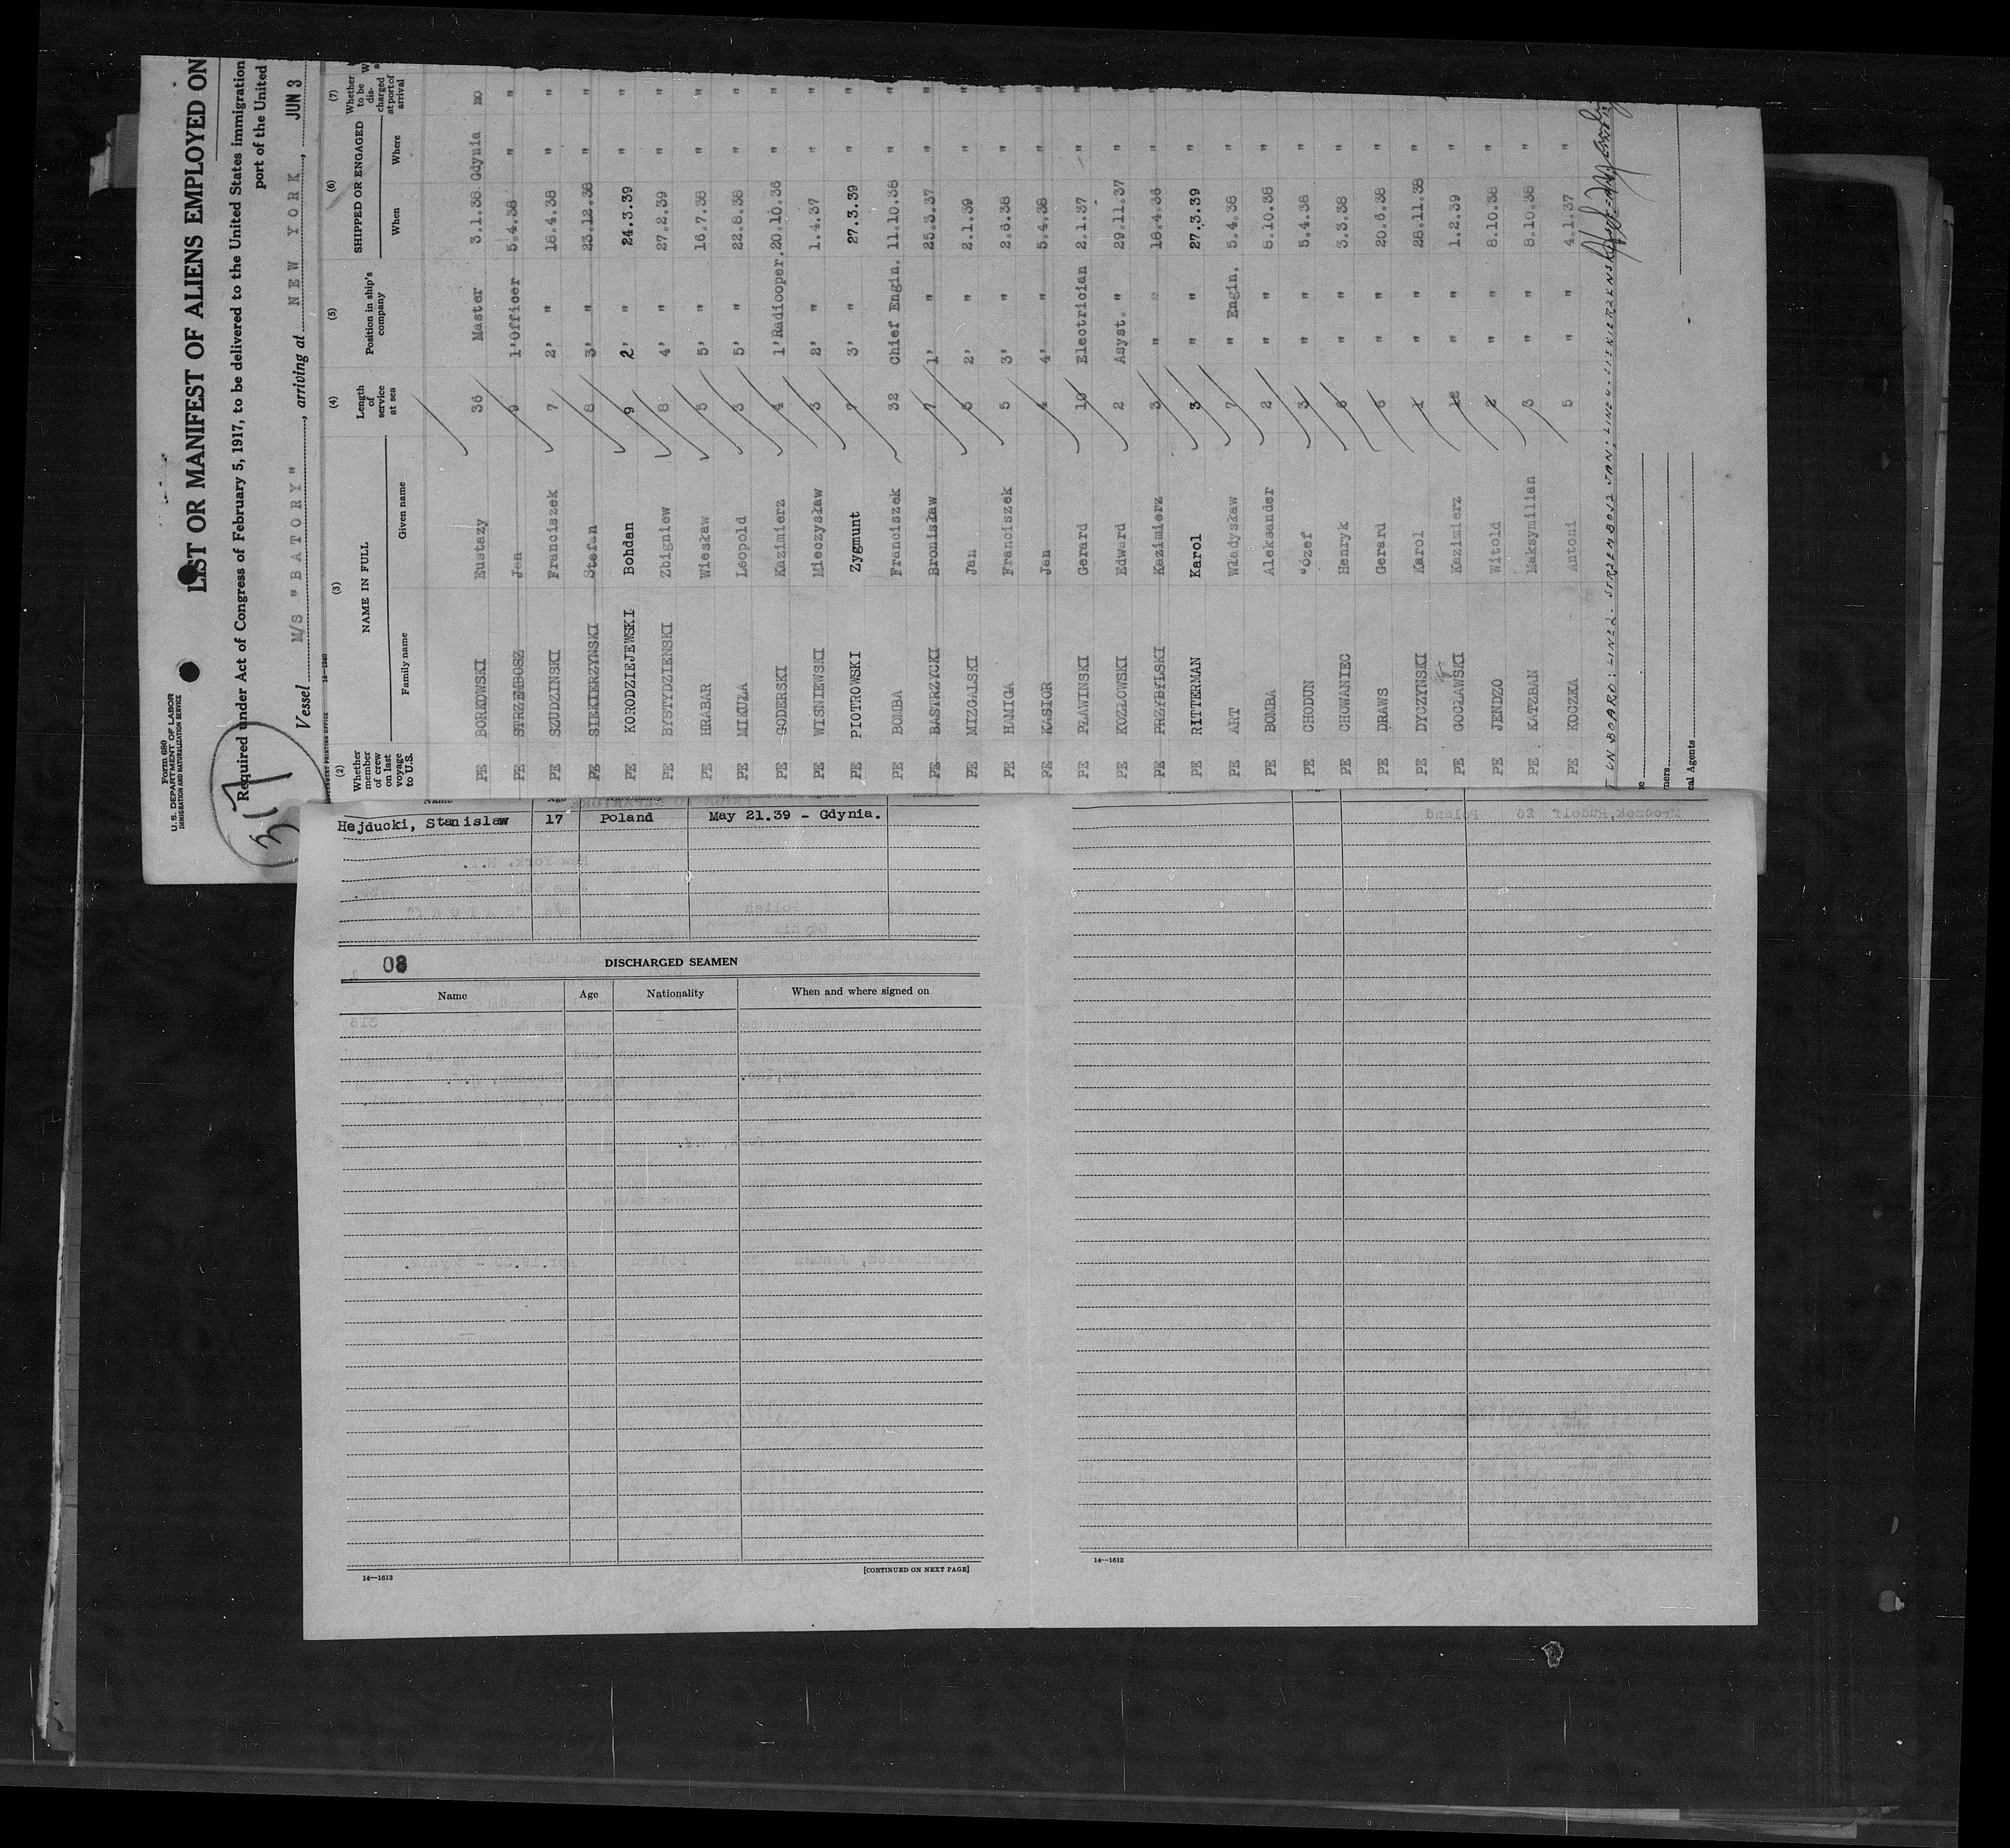 Form 680
U. S. DEPARTMENT OF LABOR
IMMIGRATION AND NATURALIZATION SERVICE
317
LIST OR MANIFEST OF ALIENS EMPLOYED ON
Required under Act of Congress of February 5, 1917, to be delivered to the United States immigration
port of the United
Vessel M/S "BATORY", arriving at NEW YORK, JUN 3
GOVERNMENT PRINTING OFFICE 14—1240
(2) (3) (4) (5) (6) (7)
Whether member of crew on last voyage to U.S. NAME IN FULL Length of service at sea Position in ship's company SHIPPED OR ENGAGED Whether to be discharged at port of arrival
Family name Given name When Where
PE BORKOWSKI Eustazy 36 Master 3.1.38 Gdynia no
PE STRZEMBOSZ Jan 9 1'Officer 5.4.38 " "
PE SZUDZINSKI Franciszek 7 2' " 18.4.38 " "
PE SIEKIERZYNSKI Stefan 8 3' " 23.12.38 " "
PE KORODZIEJEWSKI Bohdan 9 2' " 24.3.39 " "
PE BYSTYDZIENSKI Zbigniew 8 4' " 27.2.39 " "
PE HRABAR Wiesław 5 5' " 16.7.38 " "
PE MIKUŁA Leopold 3 5' " 22.8.38 " "
PE GODERSKI Kazimierz 4 1'Radiooper. 20.10.36 " "
PE WISNIEWSKI Mieczysław 3 2' " 1.4.37 " "
PE PIOTROWSKI Zygmunt 7 3' " 27.3.39 " "
PE BOMBA Franciszek 32 Chief Engin. 11.10.38 " "
PE BASTRZYCKI Bronisław 7 1' " 25.3.37 " "
PE MIZGALSKI Jan 2' " 2.1.39 " "
PE HAMIGA Franciszek 5 3' " 2.6.38 " "
PE KASIOR Jan 4 4' " 5.4.38 " "
PE PŁAWINSKI Gerard 10 Electrician 2.1.37 " "
PE KOZŁOWSKI Edward 2 Asyst. " 29.11.37 " "
PE PRZYBYLSKI Kazimierz 3 " " 18.4.36 " "
PE RITTERMAN Karol 3 " " 27.3.39 " "
PE ART Władysław 7 " Engin. 5.4.38 " "
PE BOMBA Aleksander 2 " " 8.10.38 " "
PE CHODUN Józef 3 " " 5.4.38 " "
PE CHOWANIEC Henryk 6 " " 3.3.38 " "
PE DRAWS Gerard 6 " " 20.6.38 " "
PE DYCZYNSKI Karol 1 " " 28.11.38 " "
PE GOCŁAWSKI Kazimierz 12 " " 1.2.39 " "
PE JENDZO Witold 2 " " 8.10.38 " "
PE KATZBAN Maksymilian 3 " " 8.10.38 " "
PE KOCZKA Antoni 5 " " 4.1.37 " "
ON BOARD: LINE 2 - STRZEMBOSZ JAN; LINE 4 -
cal Agents
Name
Hejducki, Stanislaw 17 Poland May 21.39 - Gdynia.
08
DISCHARGED SEAMEN
Name Age Nationality When and where signed on
14—1613
[CONTINUED ON NEXT PAGE]
14—1613